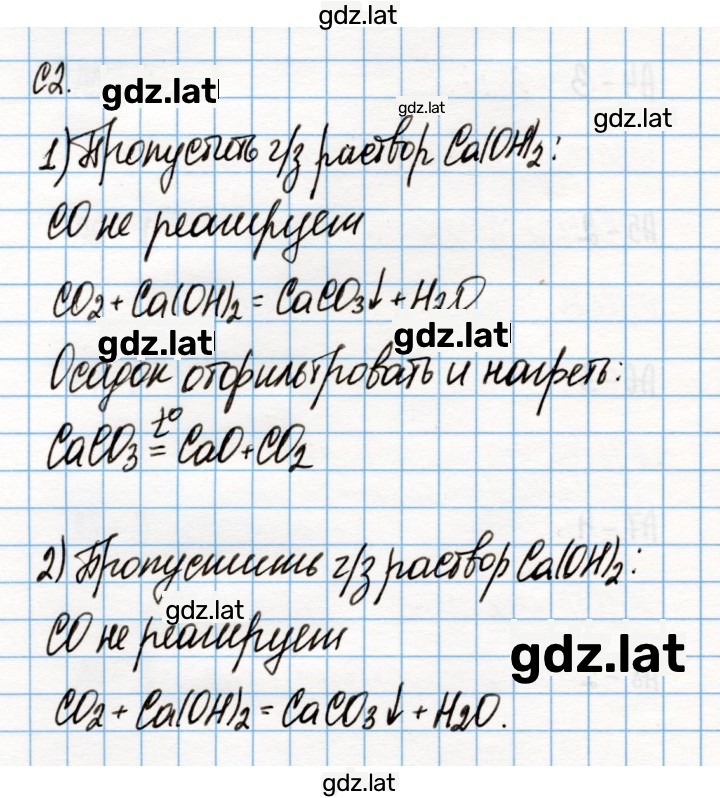 gdz.lat
С2.
gdz.lat
gdz.lat
gdz.lat
1) Пропустить ч/з раствор Ca(OH)₂:
CO не реагирует
CO₂ + Ca(OH)₂ = CaCO₃↓ + H₂O
gdz.lat
gdz.lat
Осадок отфильтровать и нагреть:
CaCO₃ t°= CaO + CO₂
2) Пропустить ч/з раствор Ca(OH)₂:
gdz.lat
CO не реагирует
gdz.lat
CO₂ + Ca(OH)₂ = CaCO₃↓ + H₂O.
gdz.lat